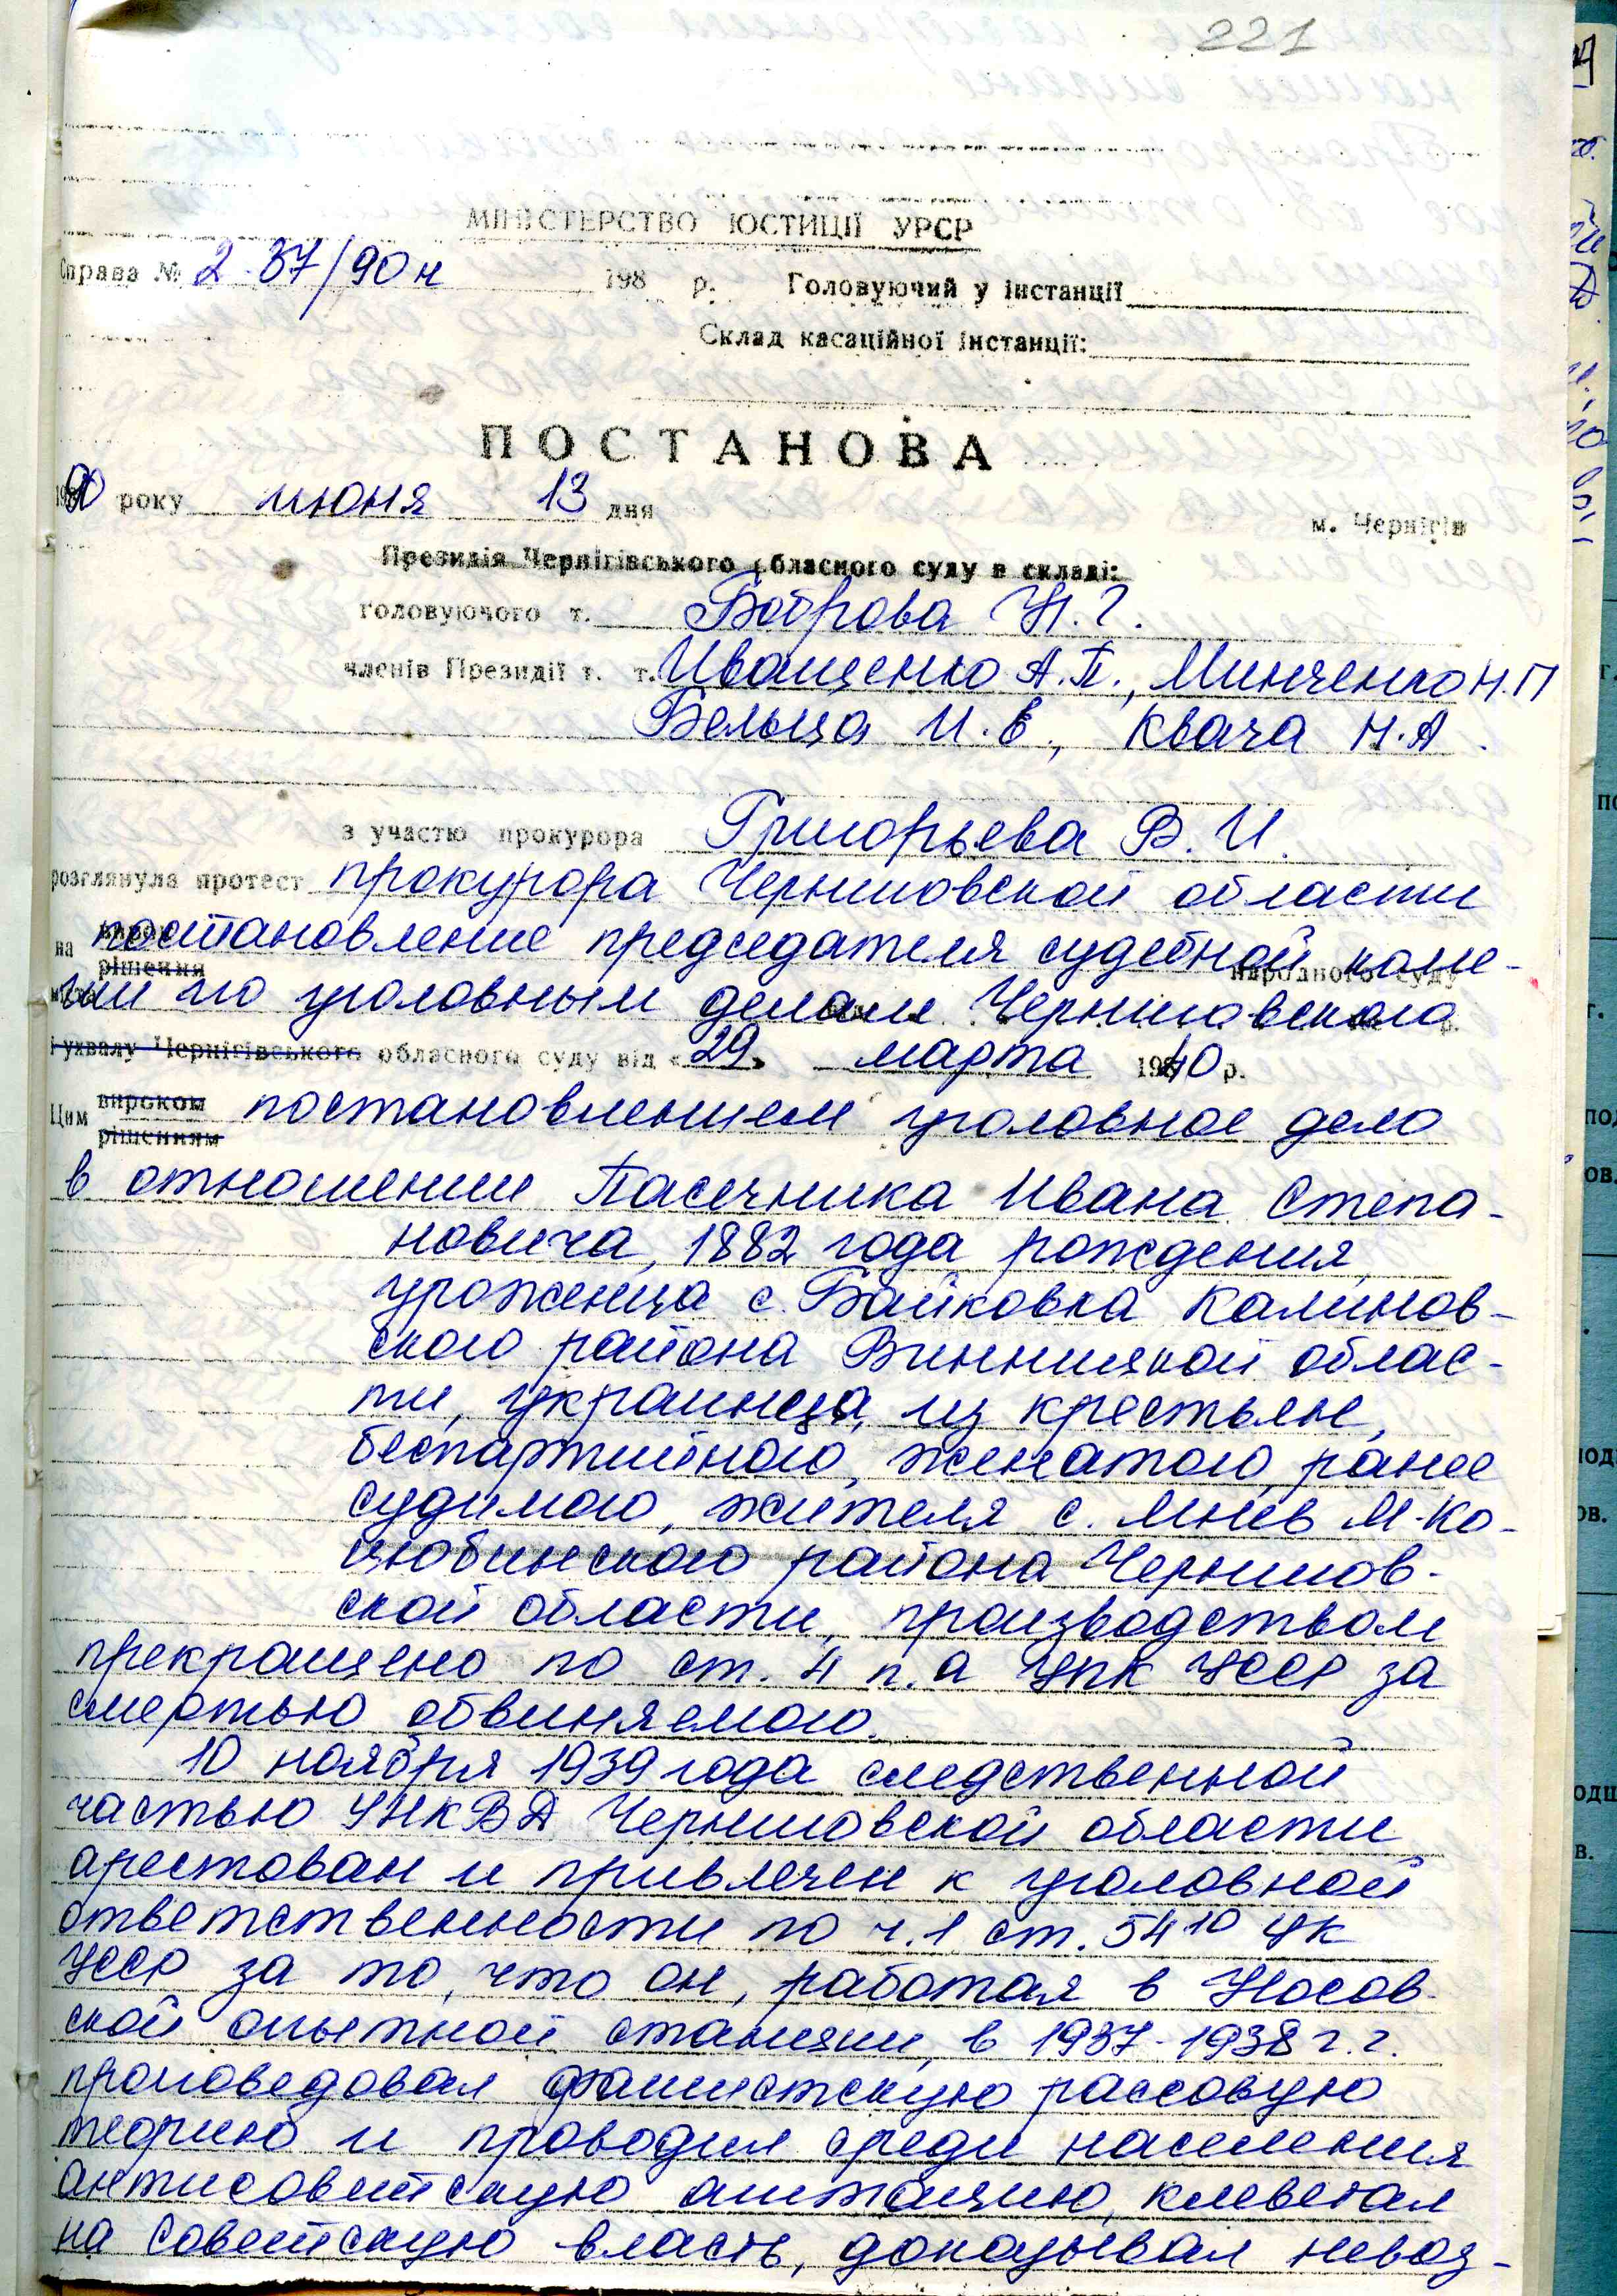 221
МІНІСТЕРСТВО ЮСТИЦІЇ УРСР
Справа № 2-37/90 н 198 р. Головуючий у інстанції
Склад касаційної інстанції:
ПОСТАНОВА
1990 року июня 13 дня
м. Чернігів
Президія Чернігівського обласного суду в складі:
головуючого т. Боброва Н.Г.
членів Президії т. т. Иващенко А.П., Минченко Н.П
Бельца И.В, Квача Н.А.
з участю прокурора Григорьева В.И.
розглянула протест прокурора Черниговской области
на вирок рішення постановление председателя судебной колле-
народного суду
гии по уголовным делам Черниговского
і ухвалу Чернігівського обласного суду від «29» марта 1940 р.
Цим вироком рішенням постановлением уголовное дело
в отношении Пасечника Ивана Степа-
новича, 1882 года рождения,
уроженца с. Байковка Калинов-
ского района Винницкой облас-
ти, украинца, из крестьян,
беспартийного, женатого, ранее
судимого, жителя с. Мнев М-Ко-
цюбинского района Чернигов-
ской области, производством
прекращено по ст. 4 п. а УПК УССР за
смертью обвиняемого.
10 ноября 1939 года следственной
частью УНКВД Черниговской области
арестован и привлечен к уголовной
ответственности по ч.1 ст. 54¹⁰ УК
УССР за то, что он, работая в Носов-
ской опытной станции, в 1937-1938 г.г.
проповедовал фашистскую рассовую
теорию и проводил среди населения
антисоветскую агитацию, клеветал
на советскую власть, доказывал невоз-